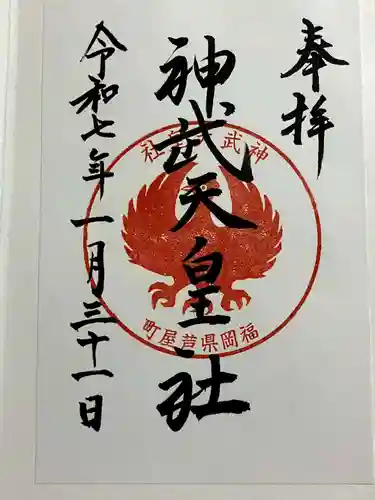 奉拝
神武天皇社
令和七年一月三十一日
神武天皇社
福岡県芦屋町